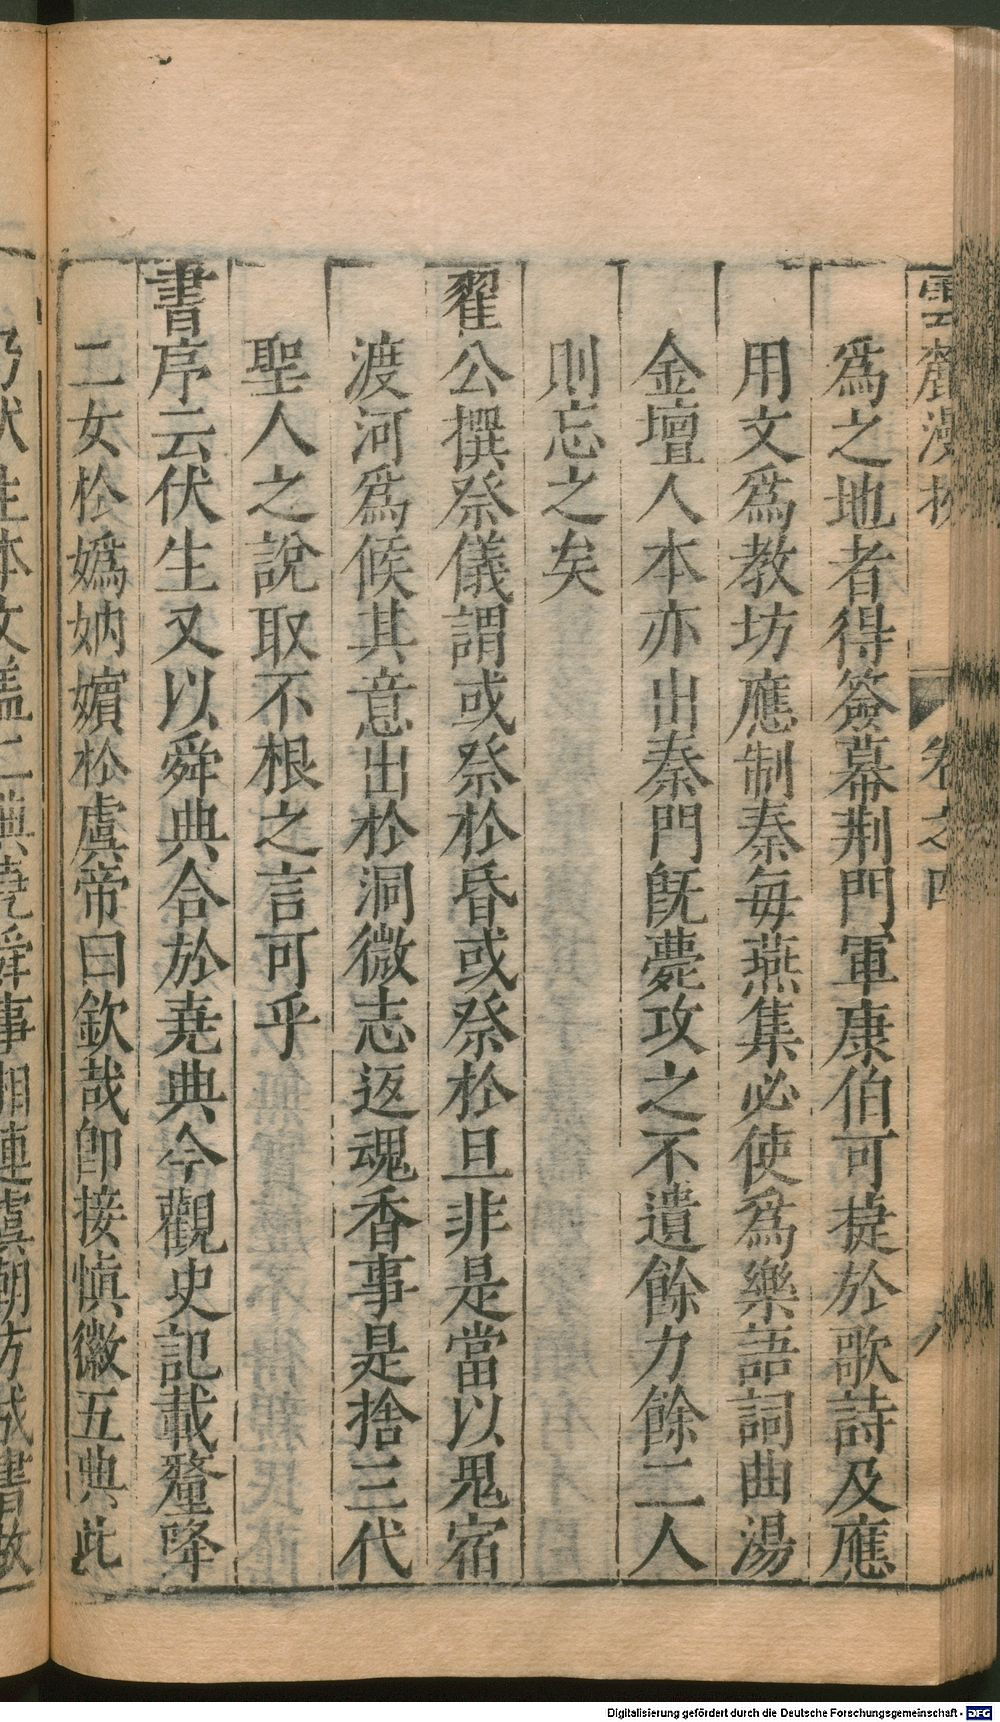 雲麓漫抄 卷之四 八
爲之地者得簽幕荆門軍康伯可捷於歌詩及應
用文爲教坊應制秦每燕集必使爲樂語詞曲湯
金壇人本亦出秦門旣薨攻之不遺餘力餘二人
則忘之矣
翟公撰祭儀謂或祭於昏或祭於旦非是當以鬼宿
渡河爲候其意出於洞微志返魂香事是捨三代
聖人之說取不根之言可乎
書序云伏生又以舜典合於堯典今觀史記載釐降
二女於嬀汭嬪於虞帝曰欽哉卽接愼徽五典此
Digitalisierung gefördert durch die Deutsche Forschungsgemeinschaft - DFG